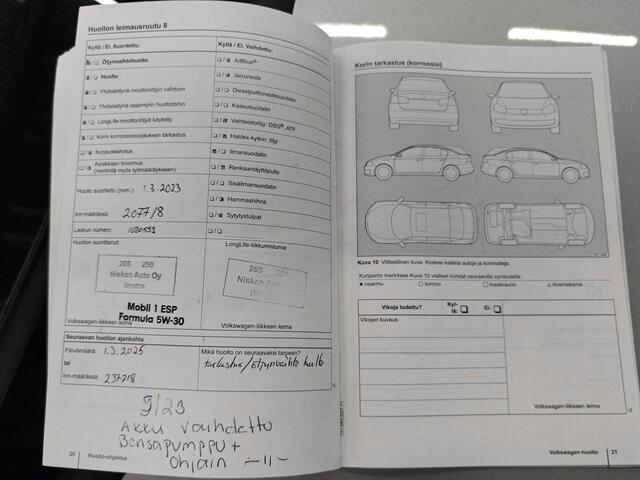 Huollon leimausruutu 8
Kyllä / Ei. Suoritettu:
Kyllä / Ei. Vaihdettu:
Öljynvaihtohuolto
AdBlue®
Huolto
Jarruneste
Yhdistettynä moottoriöljyn vaihtoon
Dieselpolttonestesuodatin
Yhdistettynä laajempiin huoltotöihin
Kaasusuodatin
LongLife-moottoriöljyä käytetty
Vaihteistoöljy: DSG®, ATF
Korin korroosiosuojauksen tarkastus
Haldex-kytkin: öljy
Korjauskehotus
Ilmansuodatin
Asiakkaan toivomus
(merkintä myös työmääräykseen)
Renkaantäyttöpullo
Sisäilmansuodatin
Hammashihna
Sytytystulpat
Huolto suoritettu (pvm.): 1.3.2023
km-määrässä: 207718
Laskun numero:
Huollon suorittanut:
LongLife-liikkumisturva:
205 250
Niskan Auto Oy
Imatra
205 250
Niskan Auto
Mobil 1 ESP
Formula 5W-30
Volkswagen-liikkeen leima
Volkswagen-liikkeen leima
Seuraavan huollon ajankohta
Päivämäärä: 1.3.2025
tai
km-määrässä: 237718
Mikä huolto on seuraavaksi tarpeen?
tarkastus/öljynvaihto hlto
9/23
Akku vaihdettu
Bensapumppu +
ohjain —11—
20 Huolto-ohjelma
Korin tarkastus (korroosio)
Kuva 10 Viitteellinen kuva. Koskee kaikkia autoja ja korimalleja.
Korjaamo merkitsee Kuva 10 vialliset kohdat seuraavilla symboleilla:
x naarmu
○ lommo
□ maalivaurio
△ kiveniskemä
Vikoja todettu?
Kyl-
lä:
Ei:
Vikojen kuvaus:
Volkswagen-liikkeen leima
Volkswagen-huolto 21